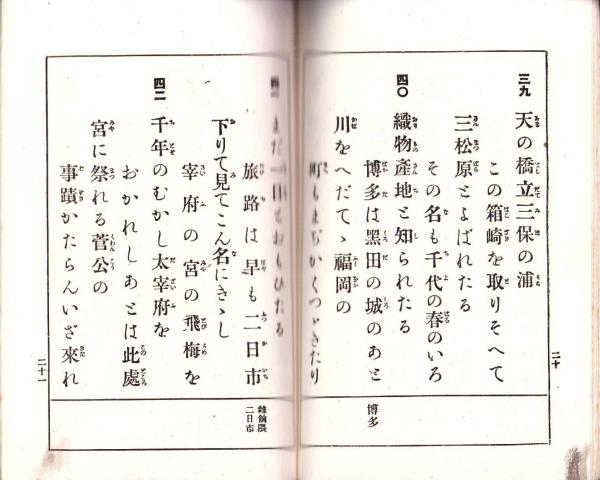 三九 天の橋立三保の浦
この箱崎を取りそへて
三松原とよばれたる
その名も千代の春のいろ
四〇 織物產地と知られたる
博多は黑田の城のあと
川をへだてゝ福岡の
町もまぢかくつゞきたり
博多
二十
まだ一日とおもひたる
旅路は早も二日市
下りて見てこん名にきゝし
宰府の宮の飛梅を
四二 千年のむかし太宰府を
おかれしあとは此處
宮に祭れる菅公の
事蹟かたらんいざ來れ
雜餉隈
二日市
二十一